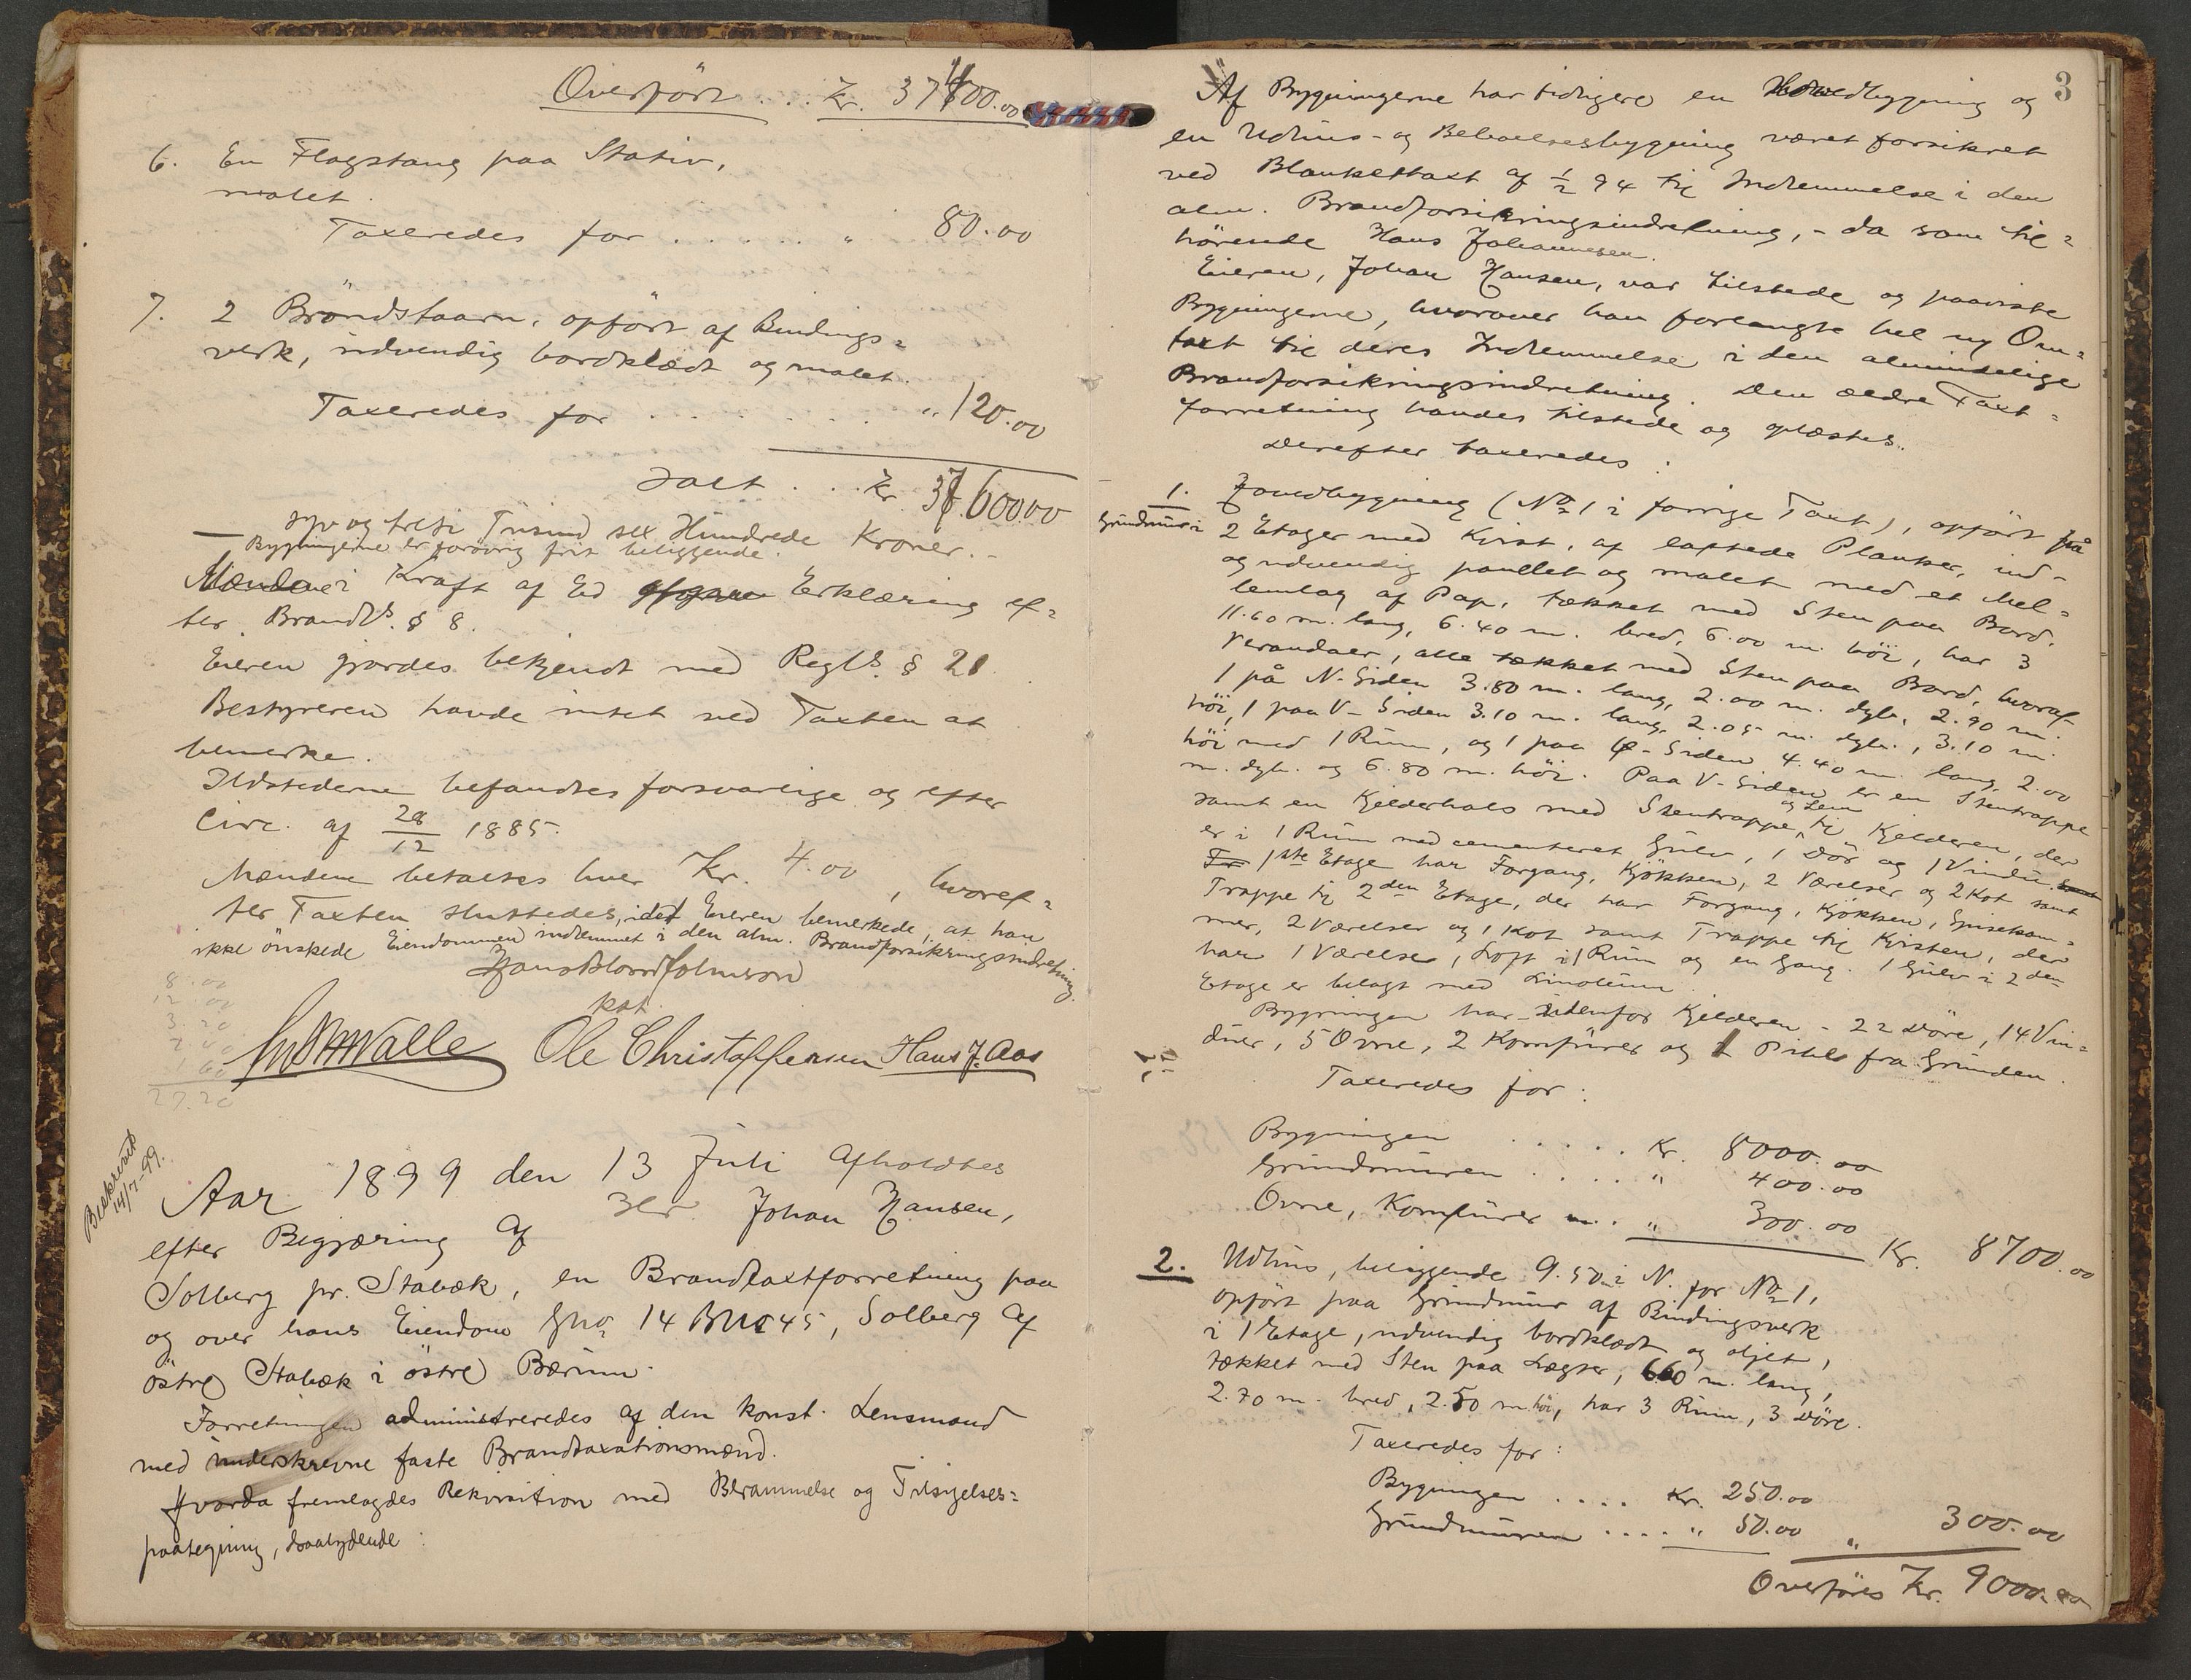 Overført . . . Kr. 37400.00
6. En Flagstang paa Stativ,
malet.
Taxeredes for . . . . . " 80.00
7. 2 Bröndstaarn, opført af Bindings=
verk, udvendig bordklædt og malet.
Taxeredes for . . . . . . . " 120.00
Ialt . . . Kr. 37.600.00
syv og treti Tusind sex Hundrede Kroner. -
Bygningerne er forövrig frit beliggende.
Mændene i Kraft af Ed Erklæring ef=
ter Brandls. § 8.
Eieren gjordes bekjendt med Regls. § 21.
Bestyreren havde intet ved Taxten at
bemerke.
Ildstederne befandtes forsvarlige og efter
Circ. af 28/12 1885.
Mændene betaltes hver Kr. 4.00, hvoref=
ter Taxten sluttedes, idet Eieren bemerkede, at han
ikke önskede Eiendommen indlemmet i den alm. Brandforsikringsindretning.
Hans Johnson
kst.
8.00
12.00
3.20
1.60
27.20
Walle Ole Christoffersen Hans J. Aas
Beskrevet
14/7-99.
Aar 1899 den 13 Juli afholdtes
efter Begjæring af Hr. Johan Hansen,
Solberg pr. Stabæk, en Brandtaxtforretning paa
og over hans Eiendom Gno 14 Bno 45, Solberg af
östre Stabæk i östre Bærum.
Forretningen administreredes af den konst. Lensmand
med underskrevne faste Brandtaxationsmænd.
Hvorda fremlagdes Rekvisition med Berammelse og Tilsigelses=
paategning, saalydende:
3
Af Bygningerne har tidligere en Hovedbygning og
en Udhus- og Beboelsesbygning været forsikret
ved Blankettaxt af 1/2 94 til Indlemmelse i den
alm. Brandforsikringsindretning, - da som til=
hörende Hans Johannesen.
Eieren, Johan Hansen, var tilstede og paaviste
Bygningerne, hvorover han forlangte hel ny Om=
taxt til deres Indlemmelse i den almindelige
Brandforsikringsindretning. Den ældre Taxt=
forretning havdes tilstede og oplæstes.
Derefter taxeredes:
1. Hovedbygning (No 1 i forrige Taxt), opført på
Grundmur i 2 Etager med Kvist, af laftede Planker, ind-
og udvendig panelet og malet med et Mel=
lemlag af Pap, tækket med Sten paa Bord.
11.60 m. lang, 6.40 m. bred, 6.00 m. höi, har 3
Verandaer, alle tækket med Sten paa Bord, hvoraf
1 på N-Siden 3.80 m. lang, 2.00 m. dyb, 2.90 m.
höi, 1 paa V-Siden 3.10 m. lang, 2.05 m. dyb., 3.10 m.
höi med 1 Rum, og 1 paa Ø-Siden 4.40 m. lang, 2.00
m. dyb. og 6.80 m. höi. Paa V-Siden er en Stentrappe
samt en Kjelderhals med Stentrappe og Lem til Kjelderen, der
er i 1 Rum med cementeret Gulv, 1 Dör og 1 Vindu.
1ste Etage har Forgang, Kjökken, 2 Værelser og 2 Kot samt
Trappe til 2den Etage, der har Forgang, Kjökken, Spisekam=
mer, 2 Værelser og 1 Kot samt Trappe til Kvisten, der
har 1 Værelse, Loft i 1 Rum og en Gang. 1 Gulv i 2den
Etage er belagt med Linoleum.
Bygningen har - udenfor Kjelderen - 22 Döre, 14 Vin=
duer, 5 Ovne, 2 Komfürer og 1 Pibe fra Grunden.
Taxeredes for:
Bygningen . . . . . Kr. 8000.00
Grundmuren . . . . . " 400.00
Ovne, Komfürer m. " 300.00 Kr. 8700.00
2. Udhus, beliggende 9.50 i N. for No 1,
opfört paa Grundmur af Bindingsverk
i 1 Etage, udvendig bordklædt og oljet,
tækket med Sten paa Lægter, 6.60 m. lang,
2.70 m. bred, 2.50 m. höi, har 3 Rum, 3 Döre.
Taxeredes for:
Bygningen . . . . Kr. 250.00
Grundmuren . . . . " 50.00 " 300.00
Overföres Kr. 9000.00